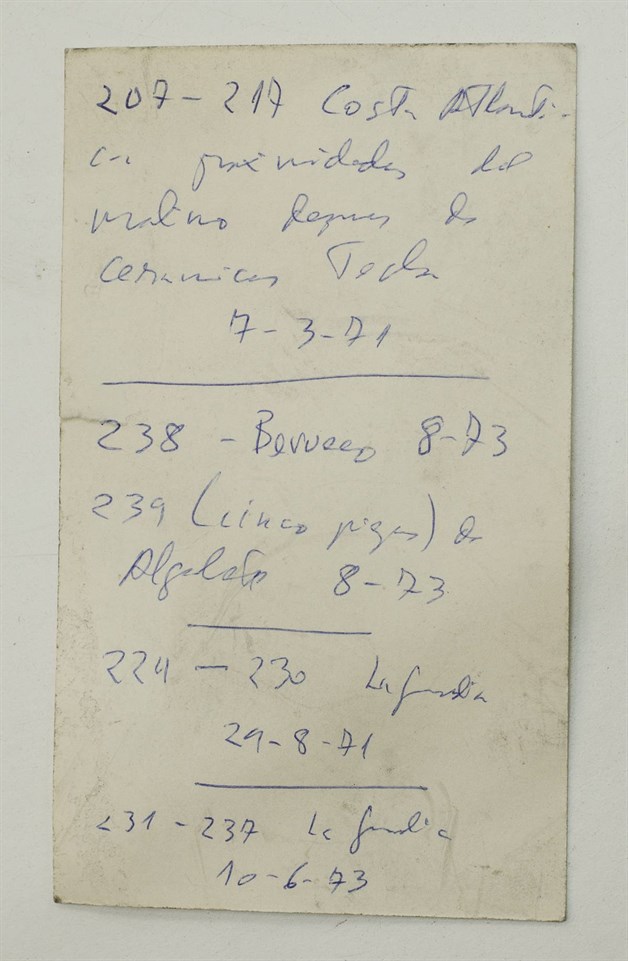 207 - 217 Costa Atlanti-
ca proximidades del
molino depues de
ceramicas Tecla
7-3-71
238 - Berrueco 8-73
239 (cinco piezas) de
8-73
224 - 230 La Guardia
29-8-71
231 - 237 La Guardia
10-6-73